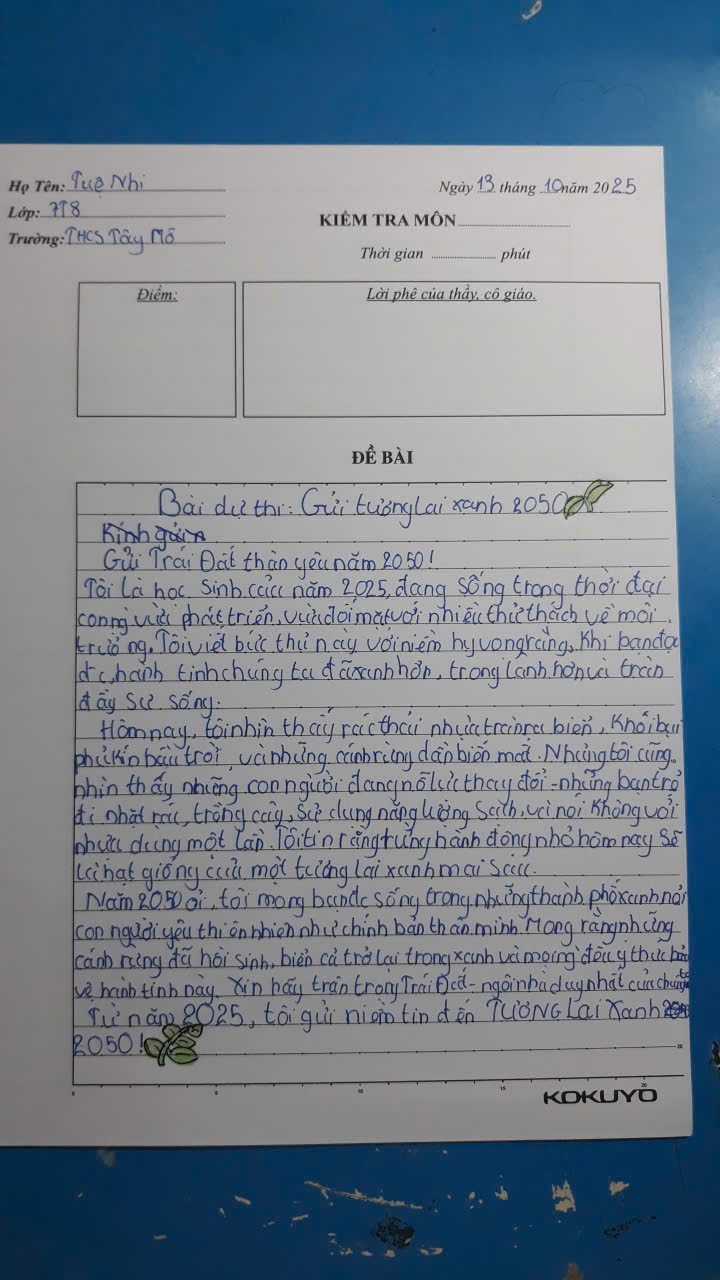 Họ Tên: Tuệ Nhi
Ngày 13 tháng 10 năm 2025
Lớp: 7T8
KIỂM TRA MÔN
Trường: THCS Tây Mỗ
Thời gian phút
Điểm:
Lời phê của thầy, cô giáo.
ĐỀ BÀI
Bài dự thi: Gửi tương lai xanh 2050
Kính gửi
Gửi Trái Đất thân yêu năm 2050!
Tôi là học sinh của năm 2025, đang sống trong thời đại
con ng vừa phát triển, vừa đối mặt với nhiều thử thách về môi
trường. Tôi viết bức thư này với niềm hy vọng rằng, khi bạn đọ
đc, hành tinh chúng ta đã xanh hơn, trong lành hơn và tràn
đầy sự sống.
Hôm nay, tôi nhìn thấy rác thải nhựa tràn ra biển, khói bụi
phủ kín bầu trời, và những cánh rừng dần biến mất. Nhưng tôi cũng
nhìn thấy những con người đang nỗ lực thay đổi - những bạn trẻ
đi nhặt rác, trồng cây, sử dụng năng lượng sạch, và nói không với
nhựa dùng một lần. Tôi tin rằng từng hành động nhỏ hôm nay sẽ
là hạt giống của một tương lai xanh mai sau.
Năm 2050 ơi, tôi mong bạn đc sống trong những thành phố xanh, nơi
con người yêu thiên nhiên như chính bản thân mình. Mong rằng những
cánh rừng đã hồi sinh, biển cả trở lại trong xanh và mọi ng đều ý thức bảo
vệ hành tinh này. Xin hãy trân trọng Trái Đất - ngôi nhà duy nhất của chúng ta
Từ năm 2025, tôi gửi niềm tin đến TƯƠNG LAI XANH
2050!
KOKUYO